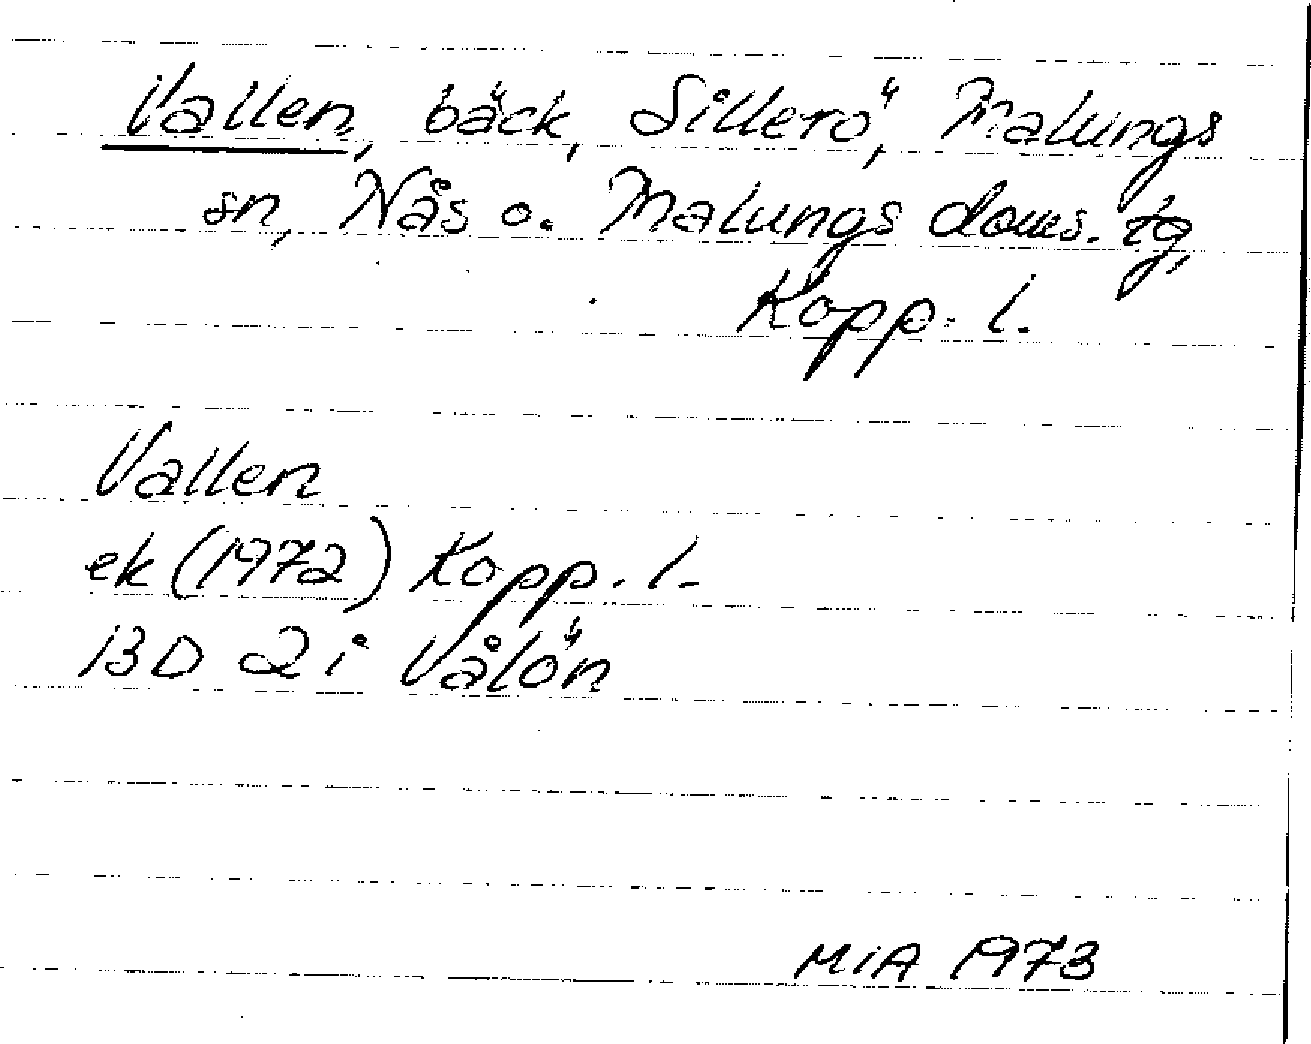 Vallen, bäck, Sillerö, Malungs
sn, Nås o. Malungs doms. tg,
Kopp. l.
Vallen
ek (1972) Kopp. l.
13D 2i Vålön
MiA 1973